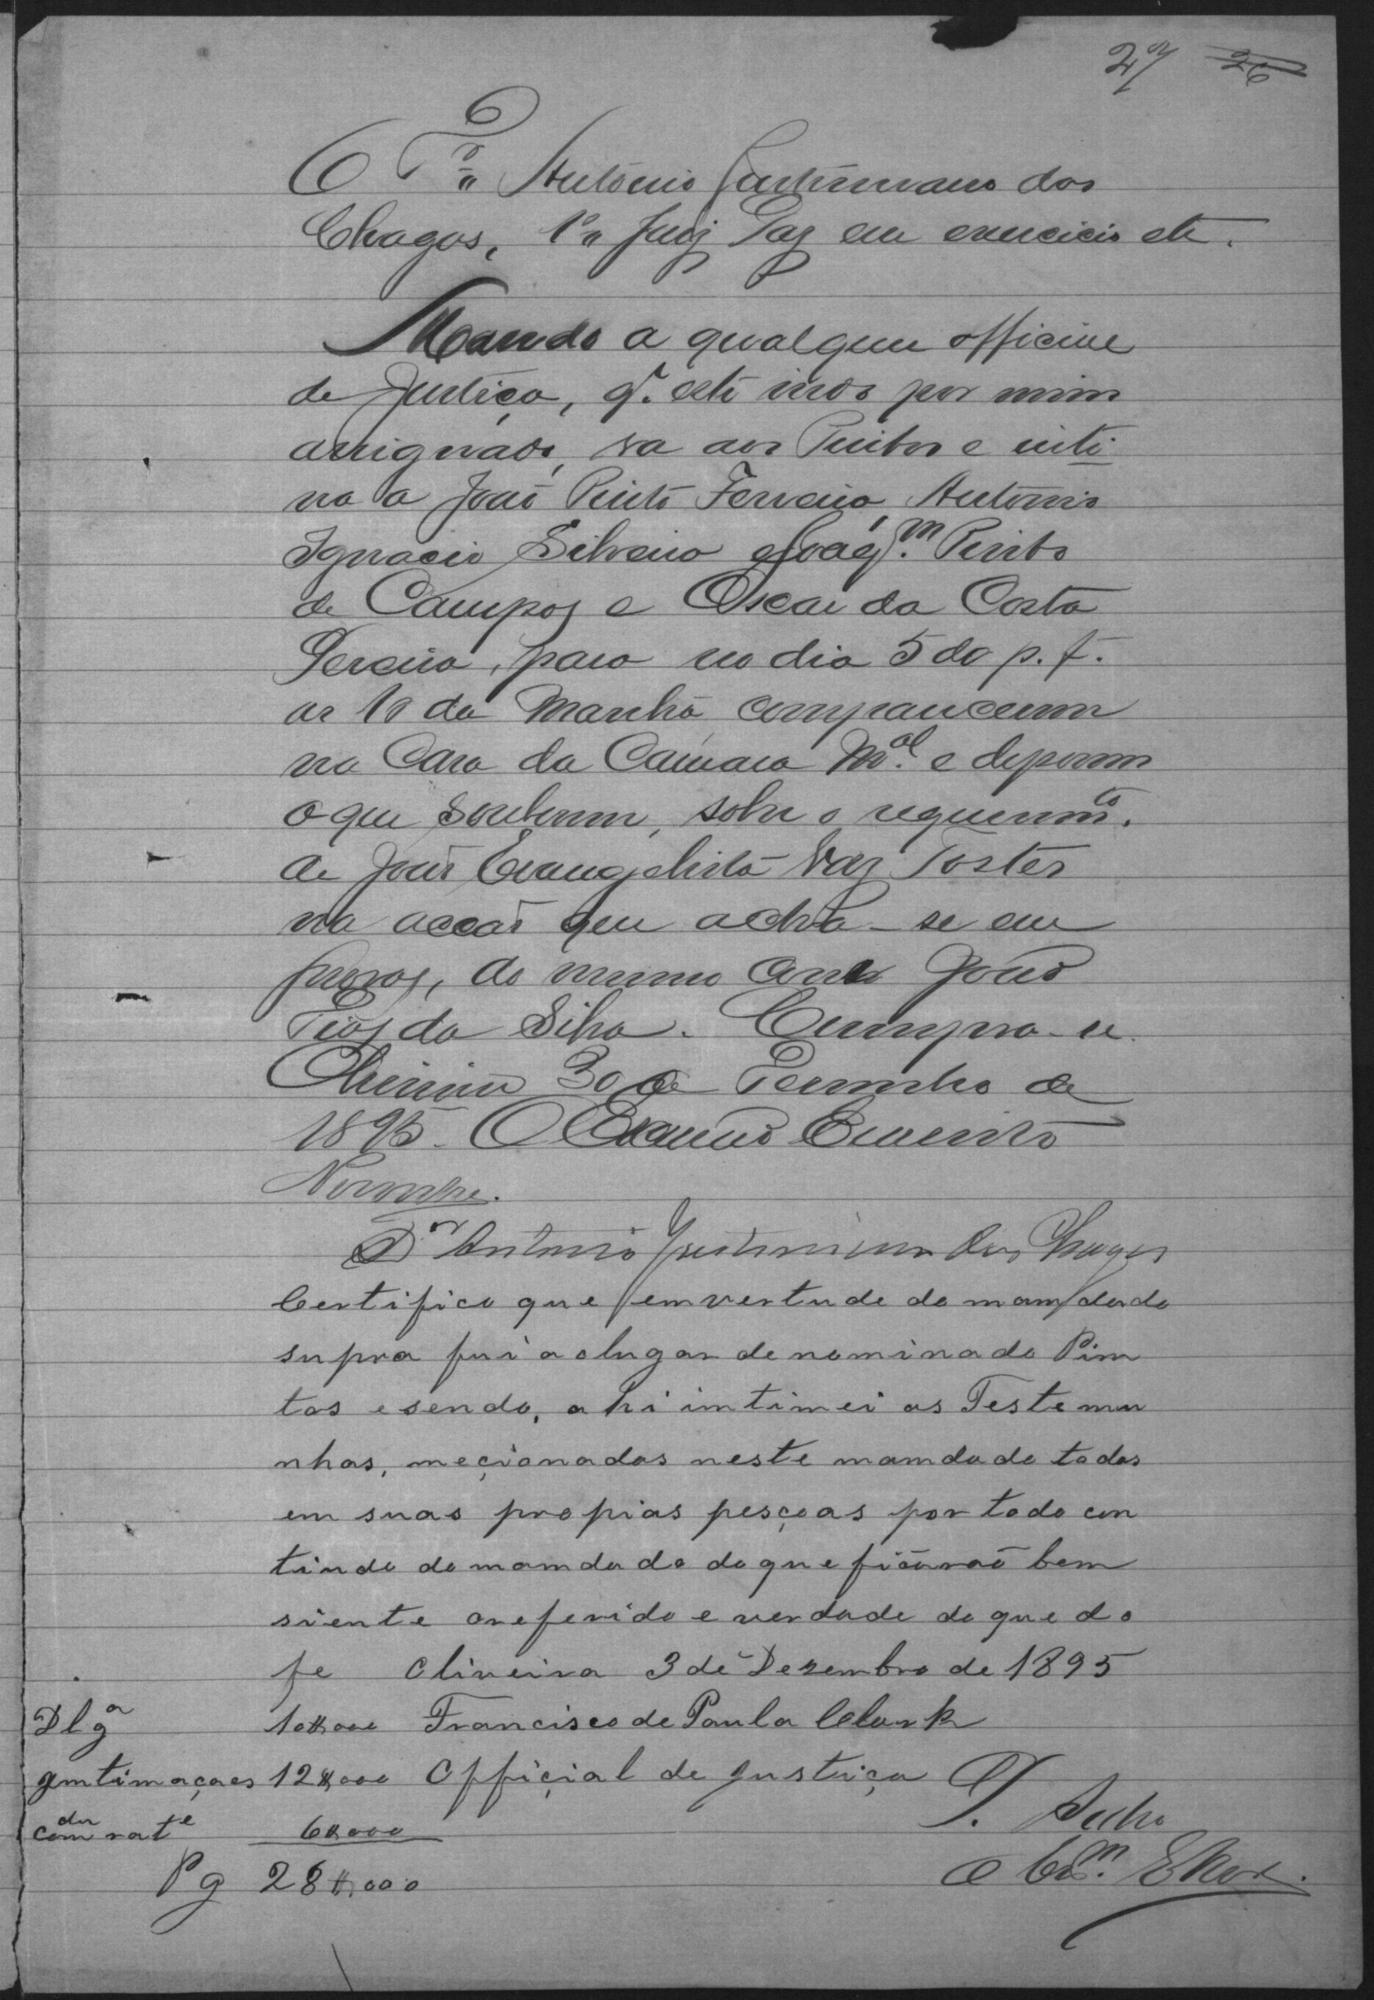 27 26
O Dr. Antonio Justiniano das
Chagas, 1o Juiz Paz em exercicio etc.
Mando a qualquer official
de Justiça, q. este indo por mim
assignado, va aos Pintos e inti-
ma a João Pinto Ferreira, Antonio
Ignacio Silveira e Joaqm. Pinto
de Campos e Oscar da Costa
Pereira, para no dia 5 do p. f.
as 10 da Manhã comparecerem
na Casa da Camara Mal. e deporem
o que souberem, sobre o requerimto.
de João Evangelista Vaz Tostes
na accão que acha-se em
provas, do mesmo com João
da Silva. Cumpra-se.
Oliveira 30 de Novembro de
1895. O Escrivão
Dor Antonio Justiniano das Chagas
Certifico que em vertude do mamdado
supra fui ao lugar denominado Pim
tos e sendo, ahi imtimei as Testemu
nhas, meçionadas neste mamdado todas
em suas propias pesçoas por todo con
tindo do mamdado do que ficarão bem
siente o referido e verdade do que do
fe Oliveira 3 de Dezembro de 1895
Dlga 10$000 Francisco de Paula Clark
Jmtimaçoes 12$000 Offiçial de Justiça
6$000
Pg 28$000